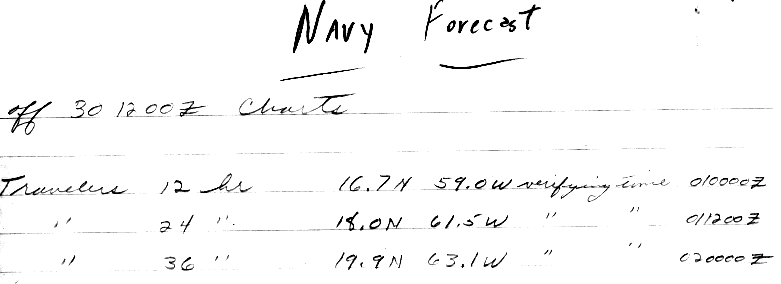 Navy Forecast
off 301200Z Charts
Travelers 12 hr 16.7N 59.0W verifying time 010000Z
" 24 " 18.0N 61.5W " " 011200Z
" 36 " 19.9N 63.1W " " 020000Z